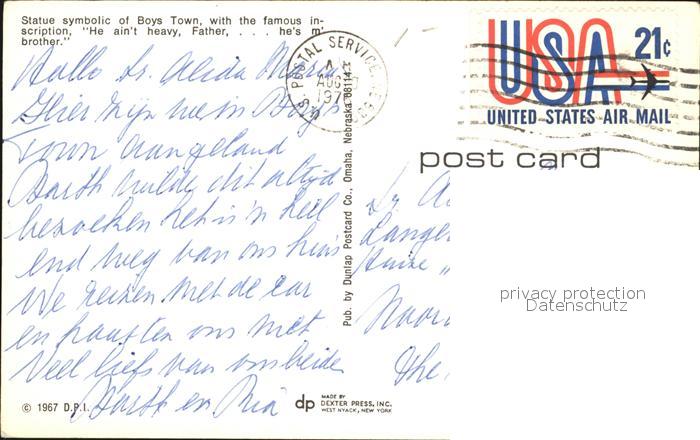 Statue symbolic of Boys Town, with the famous in-
scription, "He ain't heavy, Father, . . . he's m'
brother."
Hallo Sr. Alida Maria
Hier zijn we in Boys
Town aangeland
Barth wilde dit altijd
bezoeken het is 'n heel
end weg van ons huis
We reizen met de car
en haasten ons niet
Veel liefs van ons beide
Barth en Ria
© 1967 D.P.I.
dp MADE BY
DEXTER PRESS, INC.
WEST NYACK, NEW YORK
Pub. by Dunlap Postcard Co., Omaha, Nebraska 68114
POSTAL SERVICE
AUG
197
USA 21¢
UNITED STATES AIR MAIL
post card
Sr. A
Lange
Huize "
Noor
The
privacy protection
Datenschutz